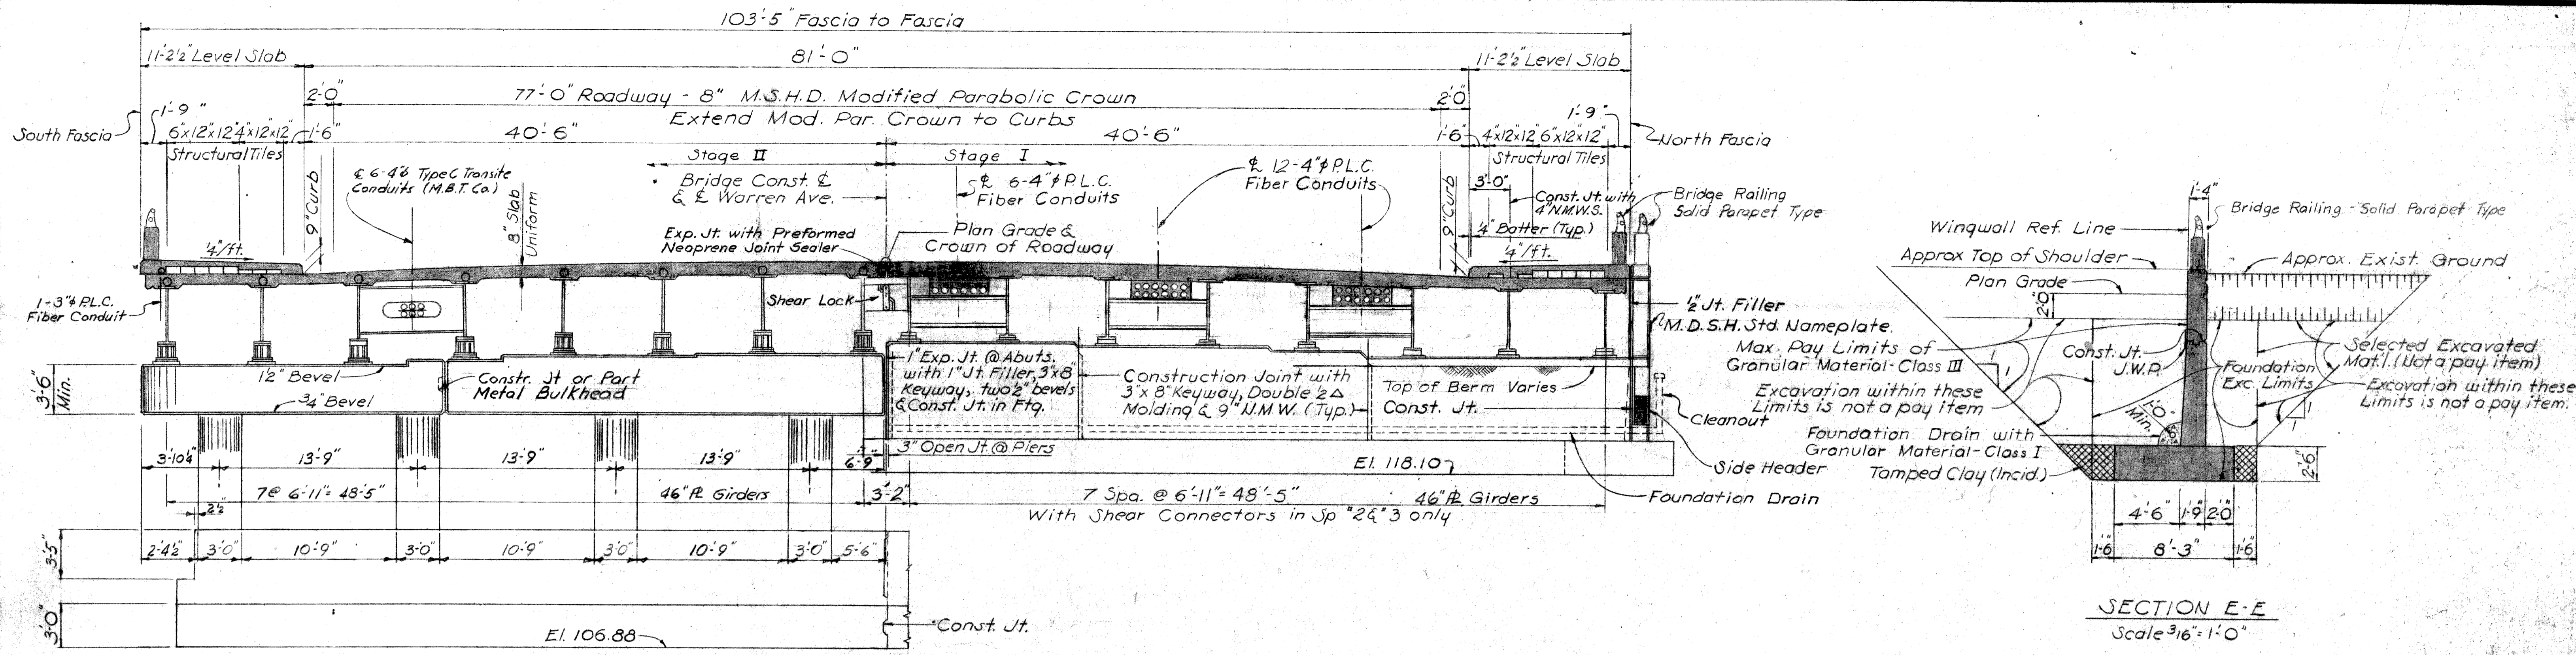 103'-5" Fascia to Fascia
11'-2½" Level Slab
81'-0"
11'-2½" Level Slab
2'-0"
77'-0" Roadway - 8" M.S.H.D. Modified Parabolic Crown
2'-0"
1'-9"
1'-9"
Extend Mod. Par. Crown to Curbs
South Fascia
6"x12"x12"
4"x12"x12"
1'-6"
40'-6"
40'-6"
1'-6"
4"x12"x12"
6"x12"x12"
North Fascia
Structural Tiles
Stage II
Stage I
Structural Tiles
℄ 6-4"ϕ Type C Transite
Conduits (M.B.T. Co.)
Bridge Const. ℄
& ℄ Warren Ave.
℄ 6-4"ϕ P.L.C.
Fiber Conduits
℄ 12-4"ϕ P.L.C.
Fiber Conduits
3'-0"
Const. Jt. with
4" N.M.W.S.
Bridge Railing
Solid Parapet Type
9" Curb
8" Slab
Uniform
9" Curb
¼"/ft.
Exp. Jt. with Preformed
Neoprene Joint Sealer
Plan Grade &
Crown of Roadway
¼" Batter (Typ.)
¼"/ft.
1-3"ϕ P.L.C.
Fiber Conduit
Shear Lock
½" Jt. Filler
M.D.S.H. Std. Nameplate.
3'-6"
Min.
½" Bevel
¾" Bevel
Constr. Jt or Part
Metal Bulkhead
1" Exp. Jt. @ Abuts.
with 1" Jt. Filler, 3"x8"
Keyway, two ½" bevels
& Const. Jt. in Ftg.
Construction Joint with
3"x 8" Keyway, Double ½ Δ
Molding & 9" N.M.W. (Typ.)
Top of Berm Varies
Const. Jt.
Cleanout
3" Open Jt. @ Piers
3'-10¼"
13'-9"
13'-9"
13'-9"
6'-9"
El. 118.10
Side Header
7 @ 6'-11" = 48'-5"
46" PL Girders
3'-2"
7 Spa. @ 6'-11" = 48'-5"
46" PL Girders
Foundation Drain
With Shear Connectors in Sp #2 & #3 only
2½"
3'-5"
2'-4½"
3'-0"
10'-9"
3'-0"
10'-9"
3'-0"
10'-9"
3'-0"
5'-6"
3'-0"
El. 106.88
Const. Jt.
1'-4"
Wingwall Ref. Line
Bridge Railing - Solid Parapet Type
Approx Top of Shoulder
Approx. Exist. Ground
Plan Grade
2'-0"
Max. Pay Limits of
Granular Material-Class III
1
1
Const. Jt.
J.W.P.
Foundation
Exc. Limits
Selected Excavated
Mat'l. (Not a pay item)
Excavation within these
Limits is not a pay item
Excavation within these
Limits is not a pay item.
1
1
1'-0"
Min.
Foundation Drain with
Granular Material-Class I
Tamped Clay (Incid.)
2'-6"
4'-6"
1'-9"
2'-0"
1'-6"
8'-3"
1'-6"
SECTION E-E
Scale 3/16" = 1'-0"